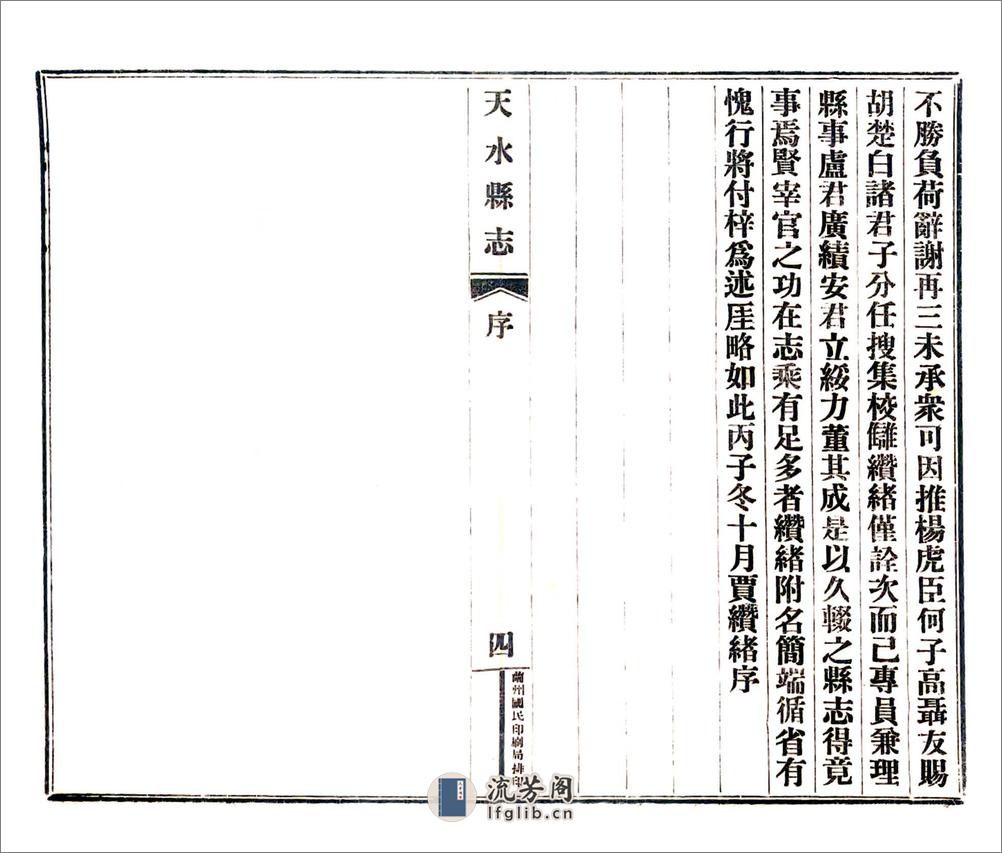 不勝負荷辭謝再三未承衆可因推楊虎臣何子高聶友賜
胡楚白諸君子分任搜集校讎纘緒僅詮次而已專員兼理
縣事盧君廣績安君立綏力董其成是以久輟之縣志得竟
事焉賢宰官之功在志乘有足多者纘緒附名簡端循省有
愧行將付梓爲述厓略如此丙子冬十月賈纘緒序
天水縣志
序
四
蘭州國民印刷局排印
流芳阁
lfglib.cn